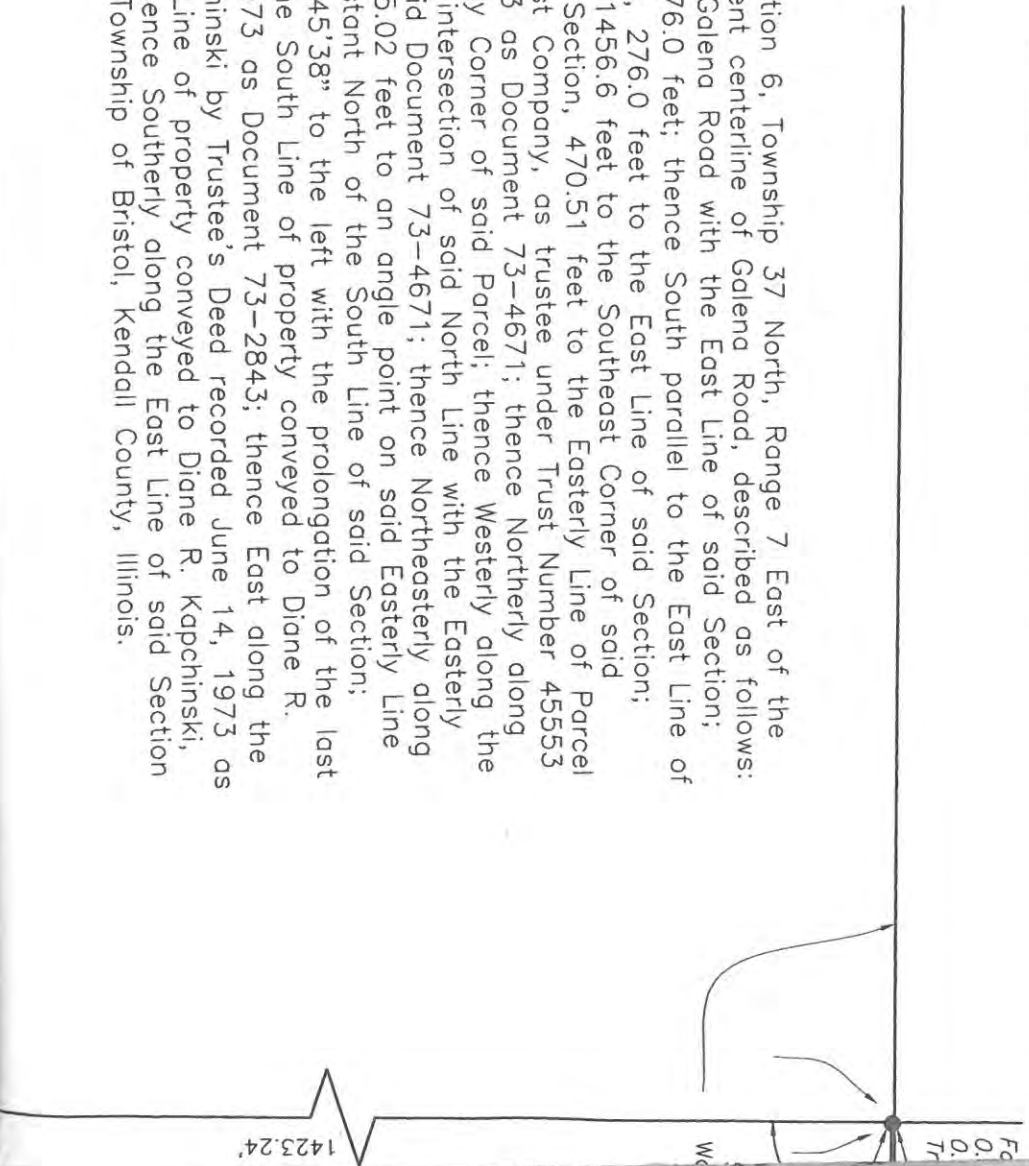 tion 6, Township 37 North, Range 7 East of the
ent centerline of Galena Road, described as follows:
Galena Road with the East Line of said Section;
76.0 feet; thence South parallel to the East Line of
, 276.0 feet to the East Line of said Section;
1456.6 feet to the Southeast Corner of said
Section, 470.51 feet to the Easterly Line of Parcel
st Company, as trustee under Trust Number 45553
3 as Document 73-4671; thence Northerly along
y Corner of said Parcel; thence Westerly along the
intersection of said North Line with the Easterly
id Document 73-4671; thence Northeasterly along
5.02 feet to an angle point on said Easterly Line
stant North of the South Line of said Section;
45'38" to the left with the prolongation of the last
ne South Line of property conveyed to Diane R.
73 as Document 73-2843; thence East along the
hinski by Trustee's Deed recorded June 14, 1973 as
Line of property conveyed to Diane R. Kapchinski,
ence Southerly along the East Line of said Section
Township of Bristol, Kendall County, Illinois.
1423.24'
0.
0.
Tr